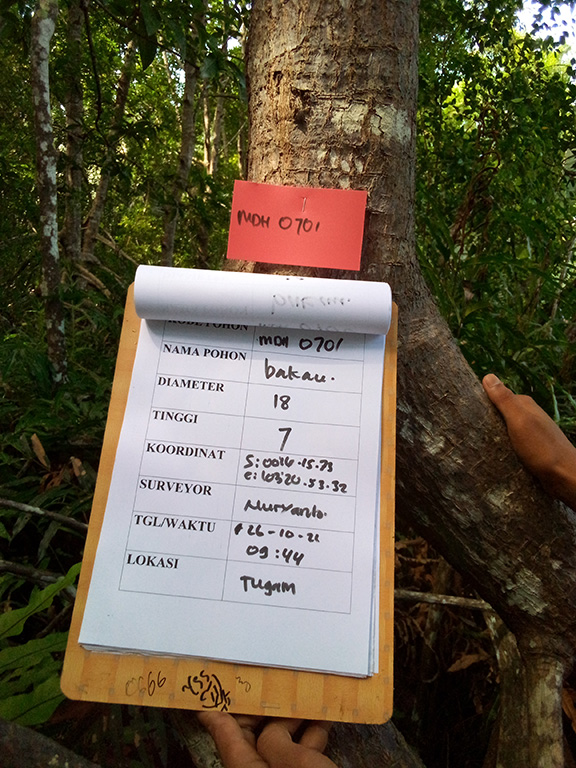 MDH 0701
KODE POHON MDH 0701
NAMA POHON bakau.
DIAMETER 18
TINGGI 7
KOORDINAT S:0016.15.73
e:10320.53.32
SURVEYOR Nuryanto.
TGL/WAKTU 26-10-21
09:44
LOKASI Tugam